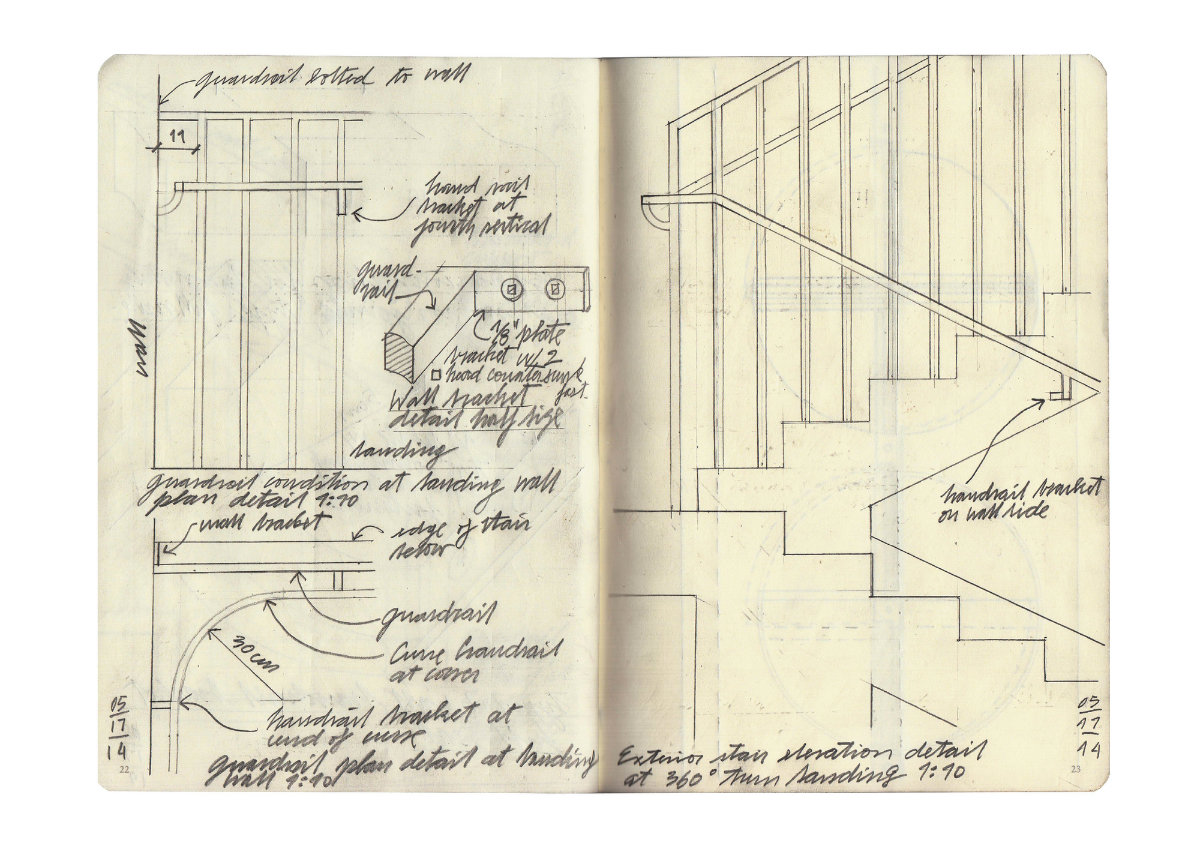 guardrail bolted to wall
11
hand rail
bracket at
fourth vertical
guard-
rail
1/8" plate
bracket w/ 2
head countersunk
fast.
Wall bracket
detail half size
wall
landing
guardrail condition at landing wall
plan detail 1:10
wall bracket
edge of stair
below
guardrail
Curve handrail
at corner
30 cm
handrail bracket at
end of curve
guardrail plan detail at landing
wall 1:10
05
17
14
22
handrail bracket
on wall side
Exterior stair elevation detail
at 360° turn landing 1:10
05
17
14
23